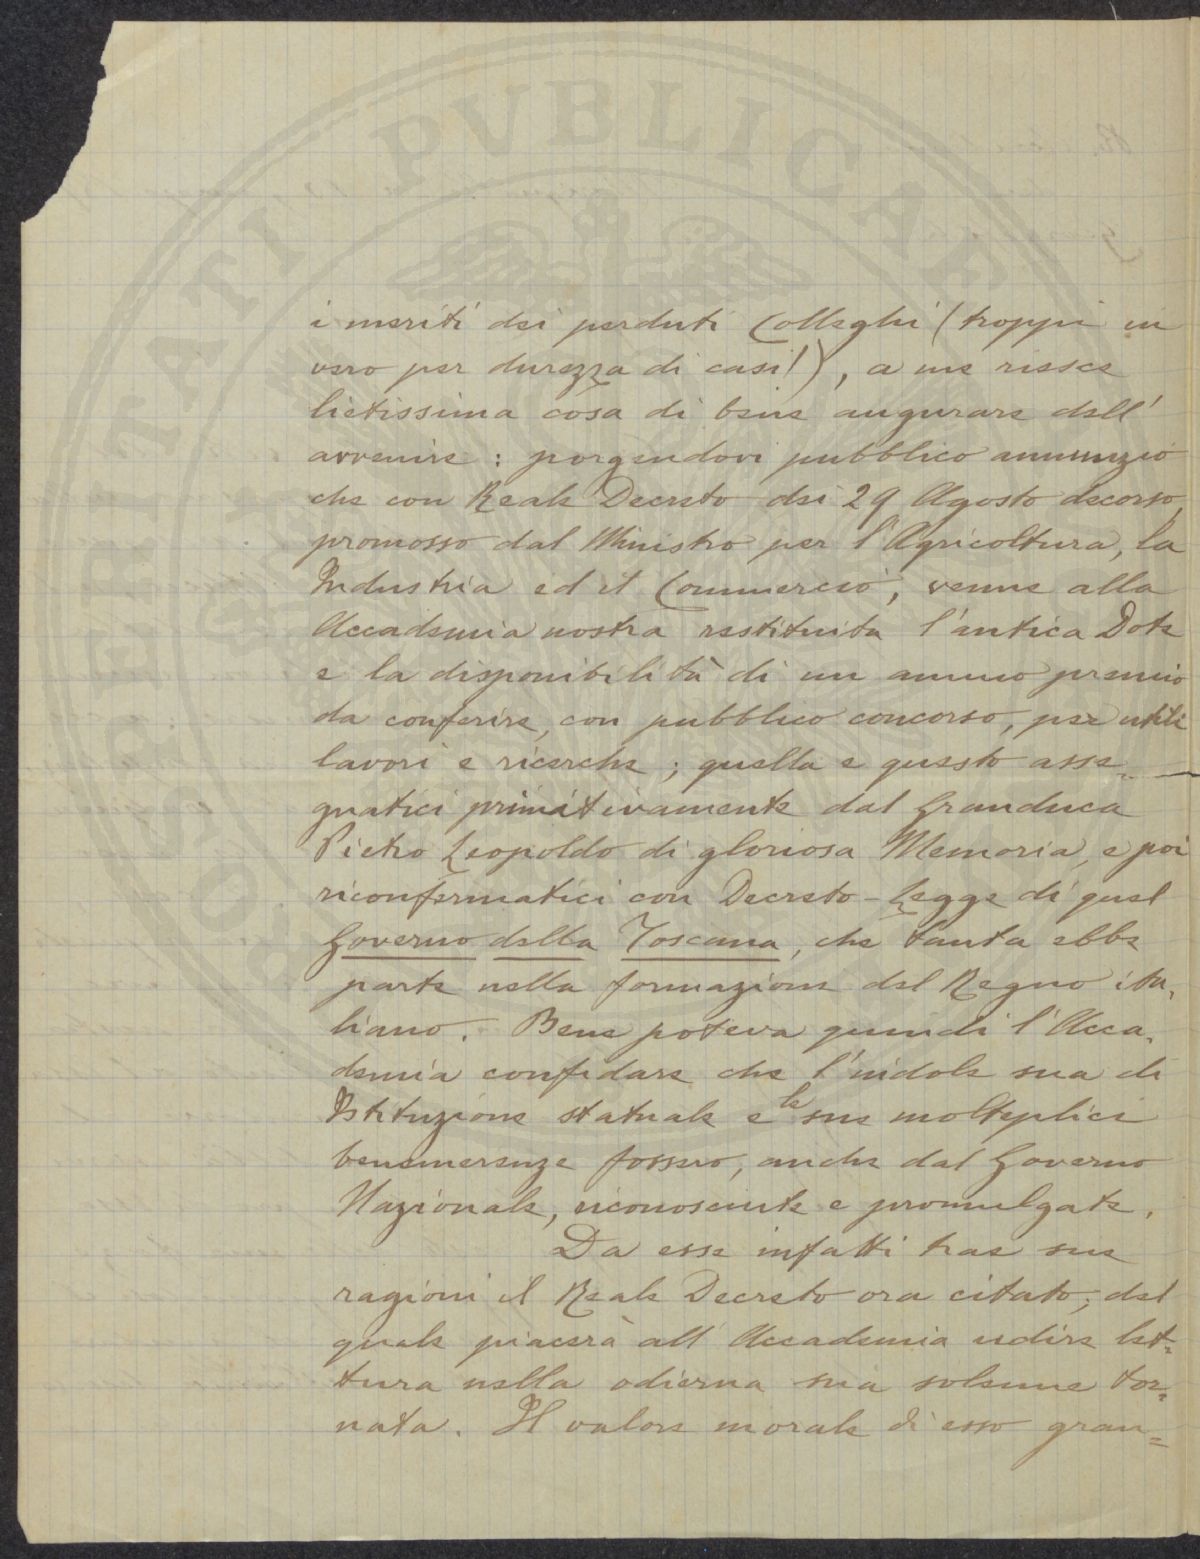 PROSPERITATI PUBLICAE
i meriti dei perduti Colleghi (troppi in
vero per durezza di casi!), a me riesce
lietissima cosa di bene augurare dell'
avvenire: porgendovi pubblico annunzio
che con Reale Decreto dei 29 Agosto decorso,
promosso dal Ministro per l'Agricoltura, la
Industria ed il Commercio, venne alla
Accademia nostra restituita l'antica Dote
e la disponibilità di un annuo premio
da conferire, con pubblico concorso, per utili
lavori e ricerche; quella e questo asse=
gnatici primitivamente dal Granduca
Pietro Leopoldo di gloriosa Memoria, e poi
riconfermatici con Decreto-Legge di quel
Governo della Toscana, che tanta ebbe
parte nella formazione del Regno ita,
liano. Bene poteva quindi l'Acca,
demia confidare che l'indole sua di
Istituzione statuale e le sue molteplici
benemerenze fossero, anche dal Governo
Nazionale, riconosciute e promulgate.
Da esse infatti trae sue
ragioni il Reale Decreto ora citato; del
quale piacerà all'Accademia udire let=
tura nella odierna sua solenne tor=
nata. Il valore morale di esso gran=